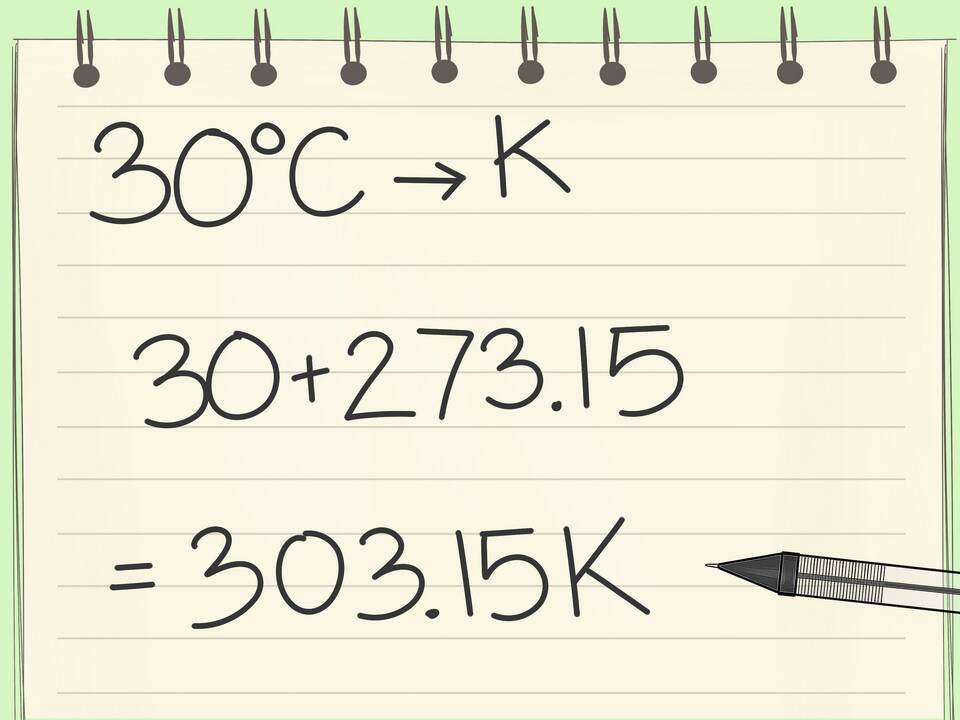 30°C → K
30+273.15
=303.15K